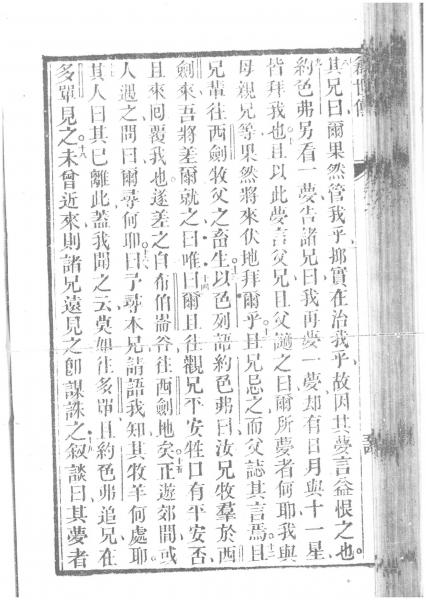 創世傳
其兄曰爾果然管我乎抑實在治我乎故因其夢言益恨之也
約色弗另看一夢告諸兄曰我再夢一夢却有日月與十一星
皆拜我也且以此夢言父兄且父謔之曰爾所夢者何耶我與
母親兄等果然將來伏地拜爾乎且兄忌之而父誌其言焉且
兄輩往西劍牧父之畜生以色列語約色弗曰汝兄牧羣於西
劍來吾將差爾就之曰唯曰爾且往觀兄平安牲口有平安否
且來囘覆我也遂差之自布伯崙谷往西劍地矣正遊郊間或
人遇之問曰爾尋何耶曰予尋本兄請語我知其牧羊何處耶
其人曰其已離此蓋我聞之云莫如往多單且約色弗追兄在
多單見之未曾近來則諸兄遠見之卽謀誅之叙談曰其夢者